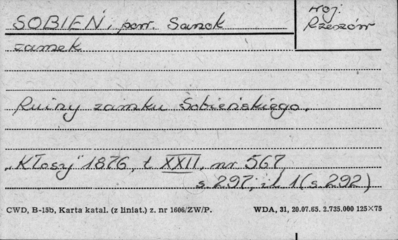 SOBIEŃ, pow. Sanok
woj. Rzeszów
zamek
Ruiny zamku Sobieńskiego.
„Kłosy" 1876, t. XXII, nr 567
s. 297, il. 1 (s. 292)
CWD, B-18b, Karta katal. (z liniat.) z. nr 1606/ZW/P.
WDA, 31, 20.07.65. 2.725.000 125×75